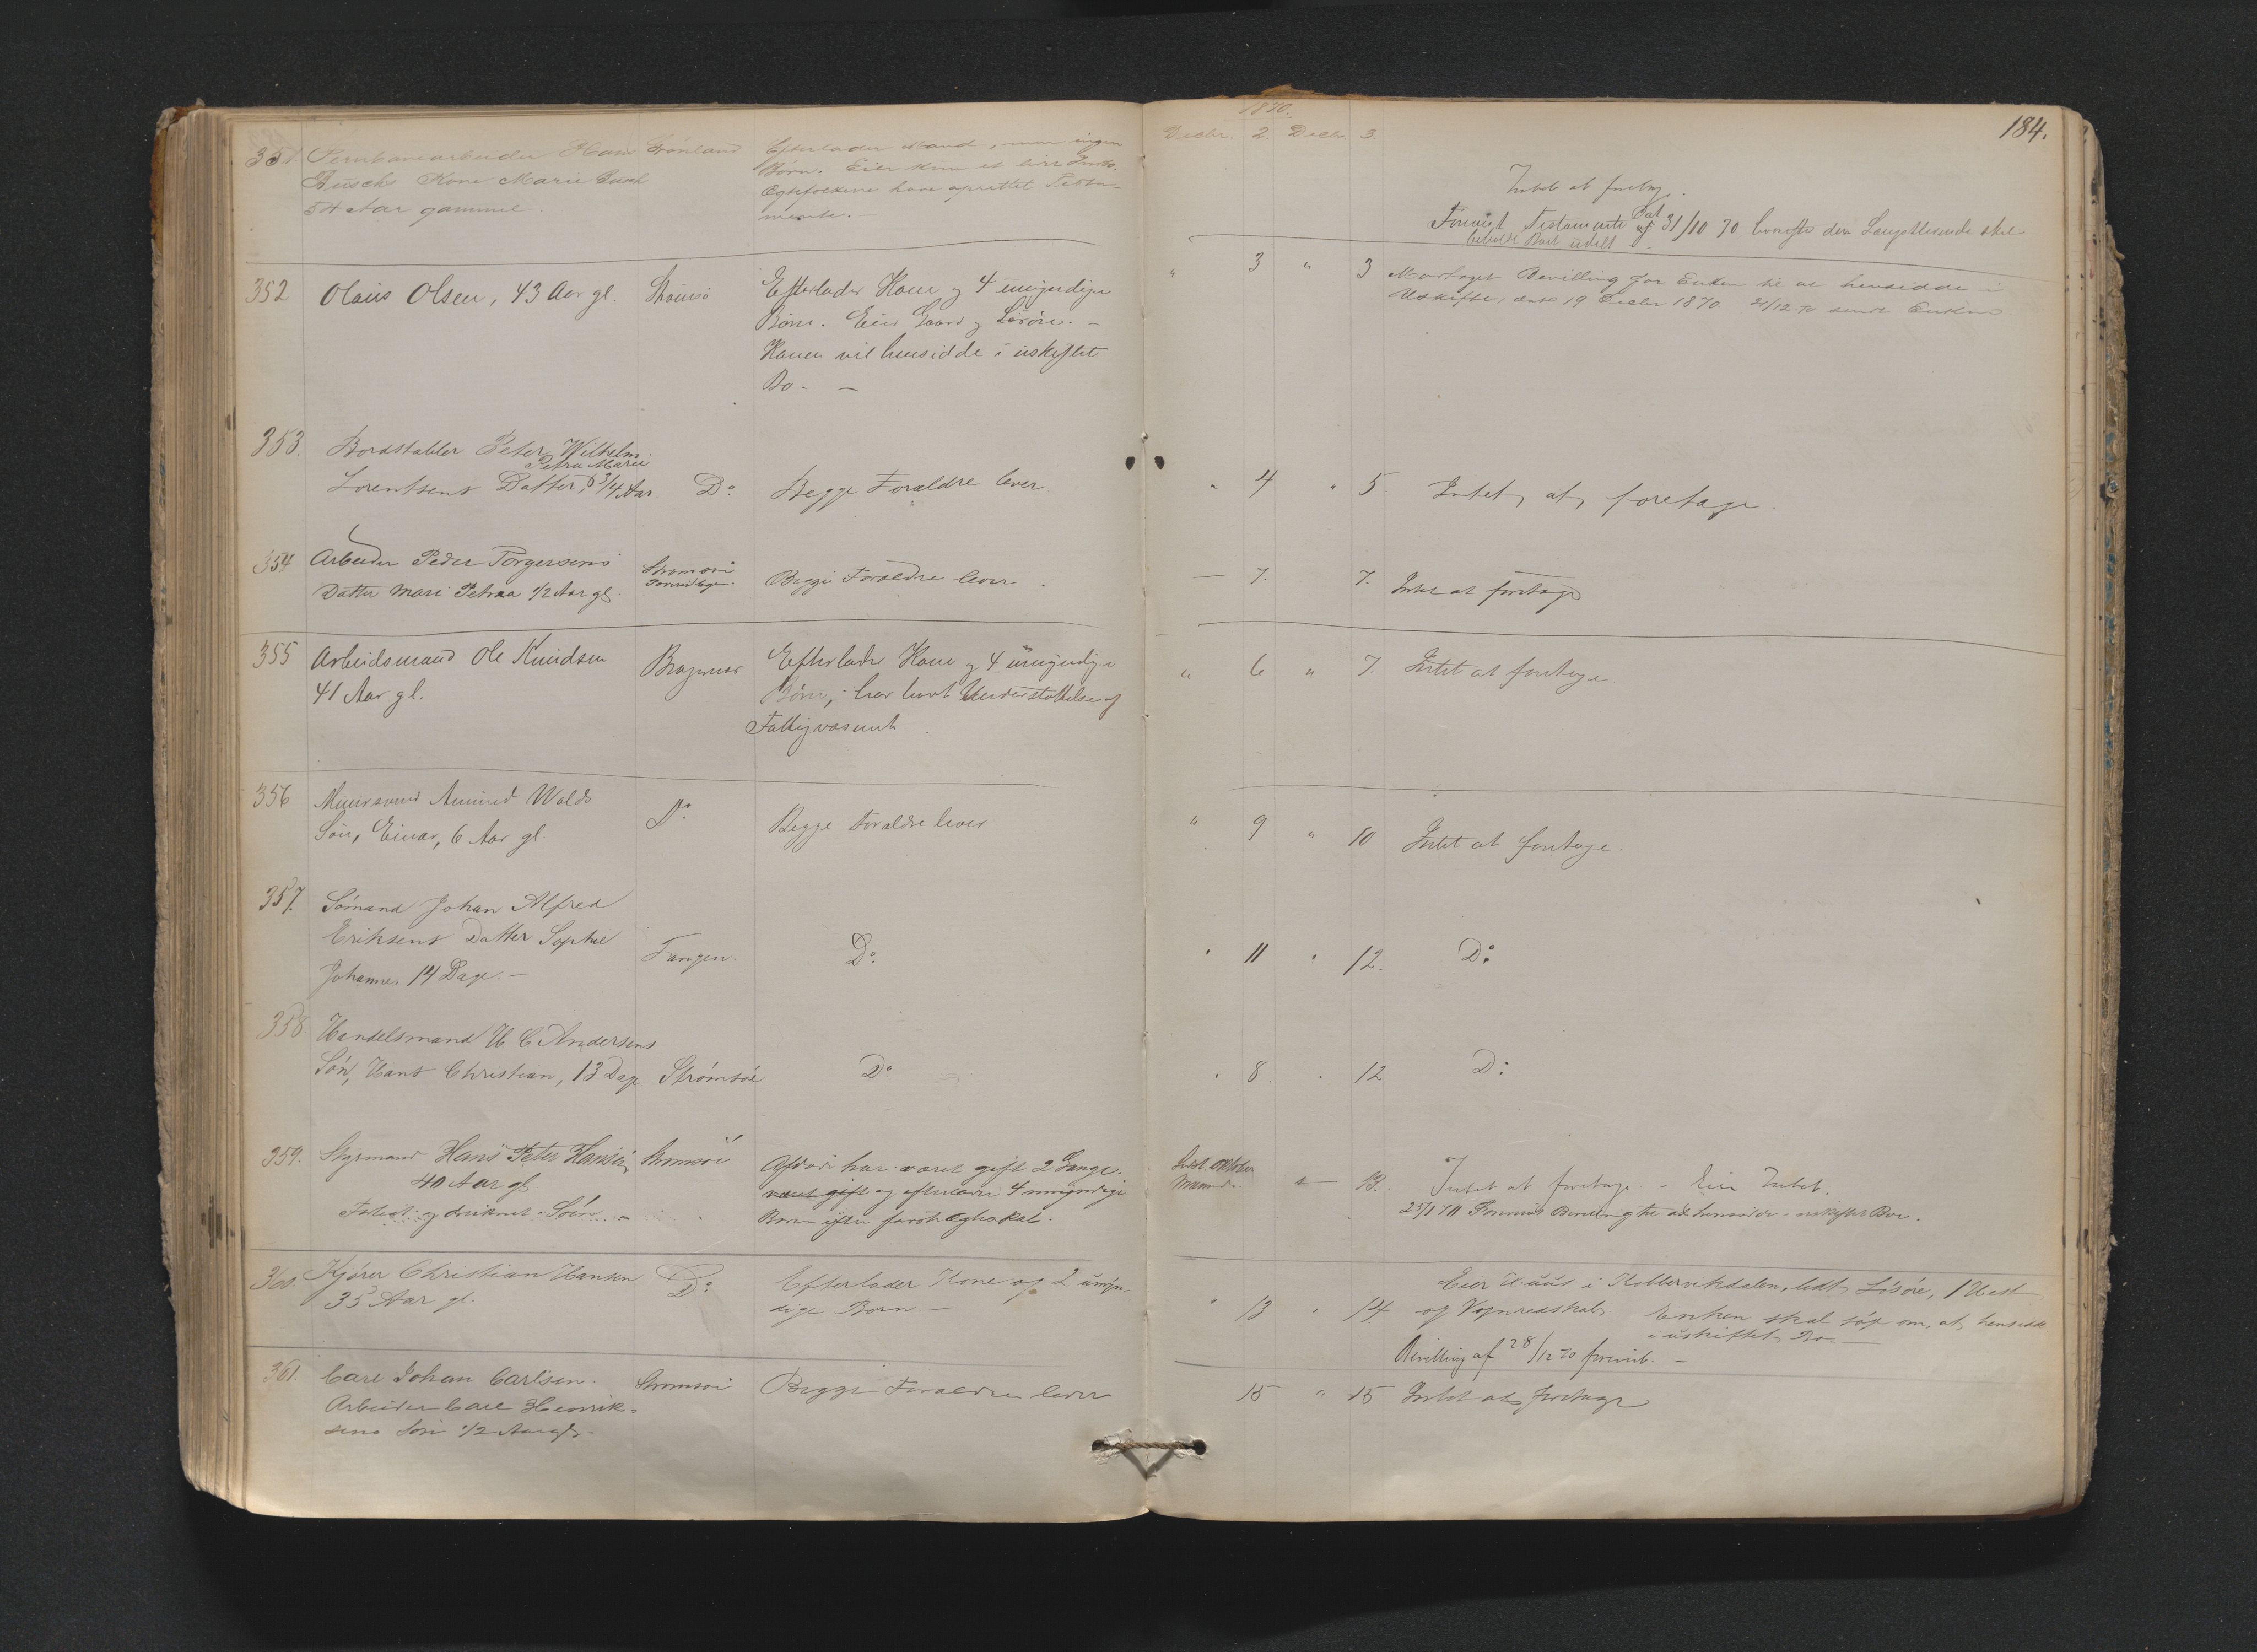 1870.
184.
351 Jernbanearbeider Hans Grønland Efterlader Mand, men ingen Decbr. 2. Decbr. 3.
Busch Kone Marie Busch Børn. Eier kun et lidet Indbo.
54 Aar gammel. Egtefolkene have oprettet Testa-
mente. —
Intet at foretage.
Forevist Testamente Dat. af 31/10 70 hvorefter den Længstlevende skal
beholde Boet udelt
352 Olaus Olsen, 43 Aar gl. Strømsø Efterlader Kone og 4 umyndige " 3 " 3 Modtaget Bevilling for Enken til at hensidde i
Børn. Eier Gaard og Løsøre. — Uskifte, dat. 19 Decbr 1870. 21/12 70 sendt Enken
Konen vil hensidde i uskiftet
Bo. —
353. Bordstabler Peter Wilhelm
Petra Marie
Lorentsens Datter, 3/4 Aar. Do Begge Forældre lever. " 4 " 5. Intet at foretage.
354 Arbeider Peder Torgersens Strømsøe
Datter Mari Petrea 1/2 Aar gl. Begge Forældre lever. — 7. 7. Intet at foretage
355 Arbeidsmand Ole Knudsen Bragernes Efterlader Kone og 4 umyndige " 6 " 7. Intet at foretage
41 Aar gl. Børn, - har havt Understøttelse af
Fattigvæsenet.
356 Muursvend Amund Wolds
Søn, Einar, 6 Aar gl Do Begge Forældre lever " 9 " 10 Intet at foretage.
357. Sømand Johan Alfred
Eriksens Datter Sophie
Johanne, 14 Dage. — Tangen. Do " 11 " 12. Do
358. Handelsmand H C Andersens
Søn, Hans Christian, 13 Dage Strømsøe Do " 8 " 12 Do
359. Styrmand Hans Peter Hansen, Strømsøe Afdøde har været gift 2 Gange. Sidst. Oktober
40 Aar gl. været gift og efterlader 4 umyndige Maaned. " 13. Intet at foretage. — Eier Intet.
Forlist og druknet i Søen — Børn efter første Egteskab. 25/1 71 Forevist Bevilling til at hensidde i uskiftet Boe.
360. Kjører Christian Hansen Do Efterlader Kone og 2 umyn-
35 Aar gl. dige Børn. —
Eier Huus i Kobbervikdalen, lidt Løsøre, 1 Hest
" 13 " 14 og Vognredskab. Enken skal søge om, at hensidde
i uskiftet Bo. —
Bevilling af 28/12 70 forevist. —
361. Carl Johan Carlsen. Strømsøe Begge Forældre lever 15 " 15 Intet at foretage
Arbeider Carl Henrik-
sens Søn 1/2 Aar gl. -